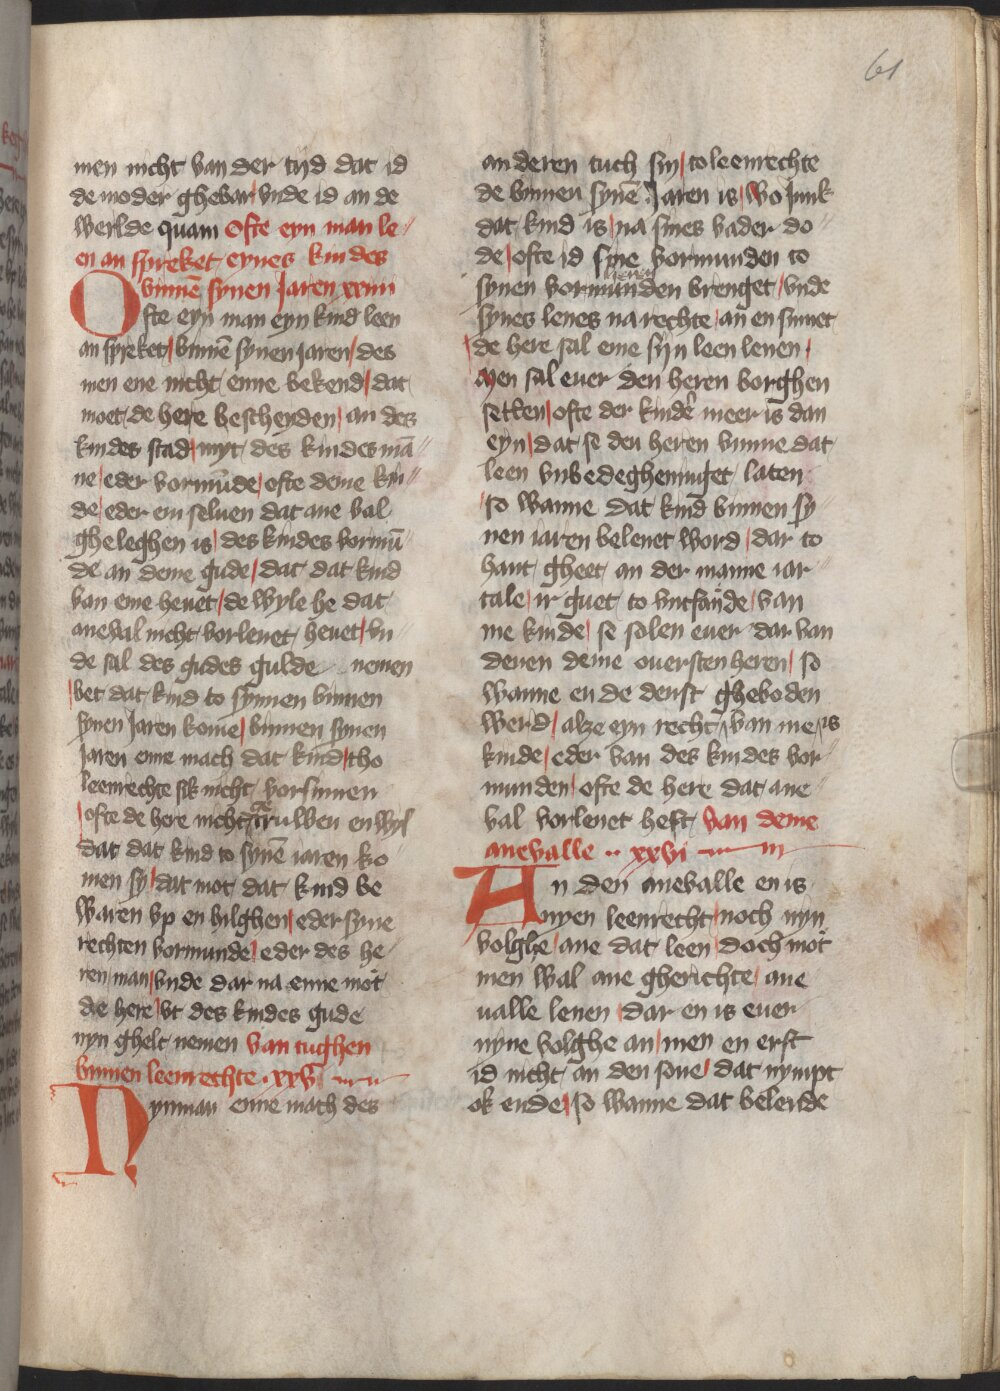 61
men nicht van der tijd dat id
de moder ghebar vnde id an de
werlde quam Ofte eyn man le-
en an spreket eynes kindes
binnē synen Jaren xxiiii
Ofte eyn man eyn kind leen
an spreket binnē synen jaren des
men eme nicht enne bekend dat
moet de here bescheyden an des
kindes stad myt des kindes mā
ne eder vormūde ofte deme kin
de eder em seluen dat ane val
gheleghen is des kindes vormū
de an deme gude dat dat kind
van eme heuet de wyle he dat
aneual nicht vorlenet heuet vn
de sal des gudes gulde nemen
bet dat kind to synnen binnen
synen Jaren kome binnen synen
Jaren eme mach dat kind tho
leenrechte sik nicht vorsinnen
ofte de here nicht truwen en wyl
dat dat kind to synē iaren ko
men sy dat mot dat kind be
waren vp en hilghen eder syne
rechten vormunde eder des he
ren man vnde dar na enne mot
de here vt des kindes gude
nyn ghelt nemen Van tughen
binnen leenrechte xxv
Nynman eme mach des
an deren tuch sin to leenrechte
de binnen synē Jaren is wo junk
dat kind is na sines vader do
de ofte id sine vormunden to
synen vormunden brenget vnde
synes lenes na rechte an en sinnet
de here sal eme syn leen lenen
Men sal euer den heren borghen
setten ofte der kinder meer is dan
eyn dat se den heren vmme dat
leen vnbedeghedinget laten
so wanne dat kind binnen sy
nen iaren belenet word dar to
hant gheet an der manne iar
tale ir guet to vntfande van
me kinde se solen euer dar van
denen deme ouersten heren so
wanne en de denst gheboden
werd alze eyn recht van me is
kinde eder van des kindes vor
munden ofte de here dat ane
val vorlenet heft Van deme
anevalle xxvi
An den anevalle en is
nyen leenrecht noch nyn
volghe ane dat leen doch mot
men wal ane gherichte ane
ualle lenen dar en is euer
nyne volghe an men en erft
id nicht an den sone dat nympt
ok ende so wanne dat belende